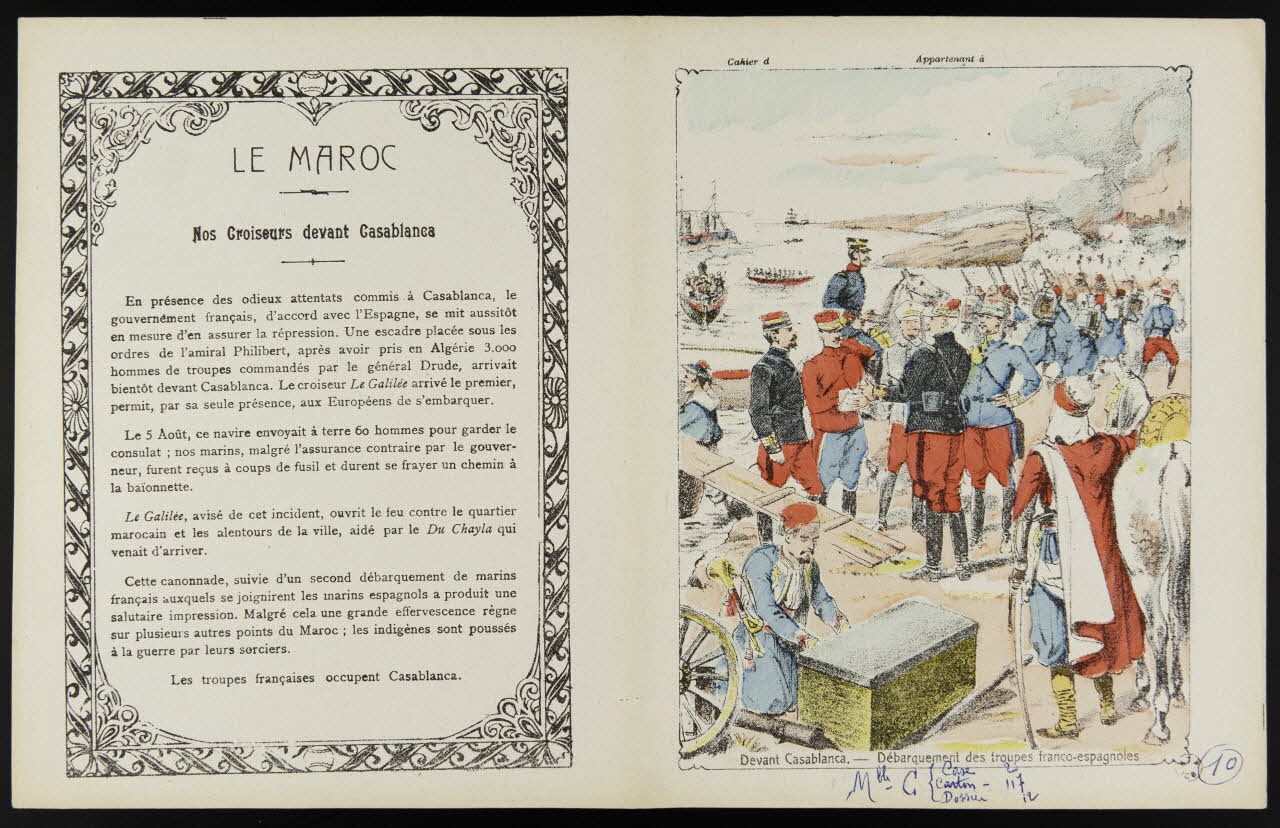 LE MAROC
Nos Croiseurs devant Casablanca
En présence des odieux attentats commis à Casablanca, le
gouvernement français, d'accord avec l'Espagne, se mit aussitôt
en mesure d'en assurer la répression. Une escadre placée sous les
ordres de l'amiral Philibert, après avoir pris en Algérie 3.000
hommes de troupes commandés par le général Drude, arrivait
bientôt devant Casablanca. Le croiseur Le Galilée arrivé le premier,
permit, par sa seule présence, aux Européens de s'embarquer.
Le 5 Août, ce navire envoyait à terre 60 hommes pour garder le
consulat ; nos marins, malgré l'assurance contraire par le gouver-
neur, furent reçus à coups de fusil et durent se frayer un chemin à
la baïonnette.
Le Galilée, avisé de cet incident, ouvrit le feu contre le quartier
marocain et les alentours de la ville, aidé par le Du Chayla qui
venait d'arriver.
Cette canonnade, suivie d'un second débarquement de marins
français auxquels se joignirent les marins espagnols a produit une
salutaire impression. Malgré cela une grande effervescence règne
sur plusieurs autres points du Maroc ; les indigènes sont poussés
à la guerre par leurs sorciers.
Les troupes françaises occupent Casablanca.
Cahier d Appartenant à
Devant Casablanca. — Débarquement des troupes franco-espagnoles
10
Mble G { Case 2
Carton - 117
Dossier 12